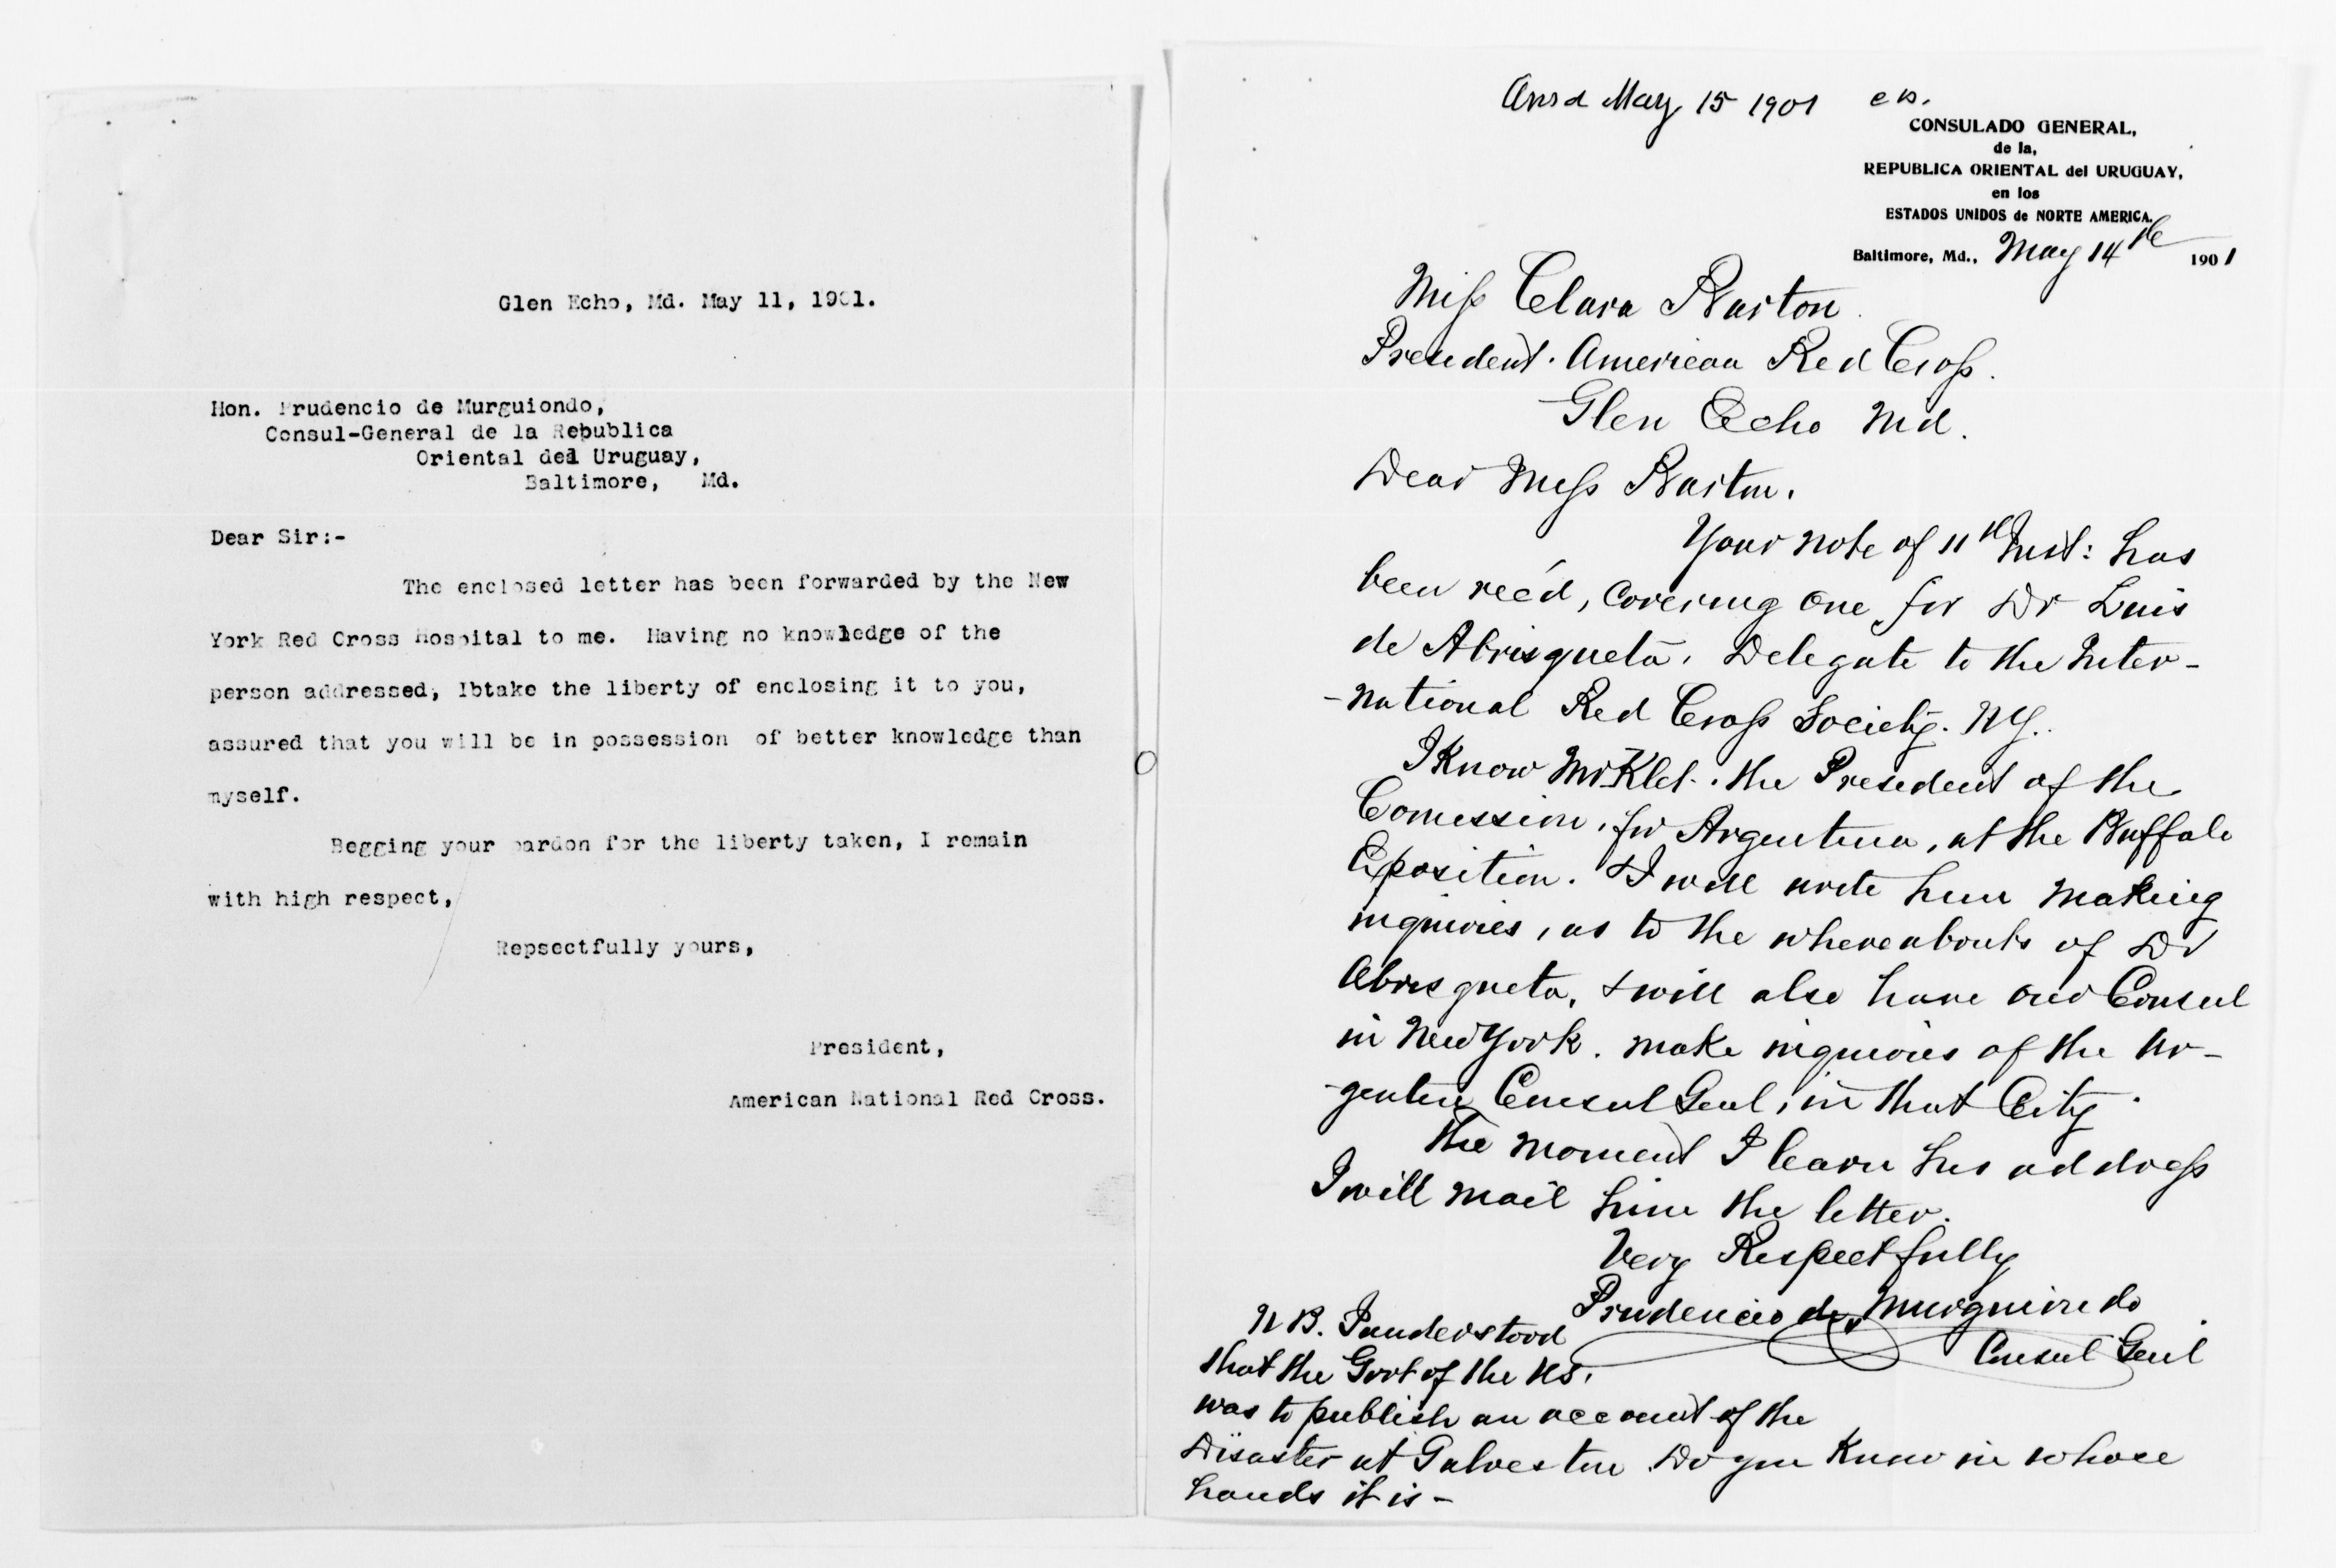 Glen Echo, Md. May 11, 1901.
Hon. Prudencio de Murguiondo,
Consul-General de la Republica
Oriental del Uruguay,
Baltimore, Md.
Dear Sir:-
The enclosed letter has been forwarded by the New
York Red Cross Hospital to me. Having no knowledge of the
person addressed, Ibtake the liberty of enclosing it to you,
assured that you will be in possession of better knowledge than
myself.
Begging your pardon for the liberty taken, I remain
with high respect,
Repsectfully yours,
President,
American National Red Cross.
Ansd May 15 1901
CONSULADO GENERAL,
de la,
REPUBLICA ORIENTAL del URUGUAY,
en los
ESTADOS UNIDOS de NORTE AMERICA.
Baltimore, Md., May 14th 1901
Miss Clara Barton
President. American Red Cross.
Glen Echo Md.
Dear Miss Barton.
Your note of 11th Inst: has
been rec'd, covering one for Dr Luis
de Abrisqueta, Delegate to the Inter-
-national Red Cross Society. NY.
I Know Mr the President of the
Comission, for Argentina, at the Buffalo
Exposition. & I will write him making
inquiries, as to the whereabouts of Dr
Abrisqueta, & will also have our Consul
in New York. make inquiries of the Ar-
-gentine Consul Genl, in that City.
The moment I learn his address
I will mail him the letter.
Very Respectfully
Prudencio de Murguiondo
Consul Genl
N B. I understood
that the Govt of the US.
was to publish an account of the
Disaster at Galveston. Do you Know in whose
hands it is -